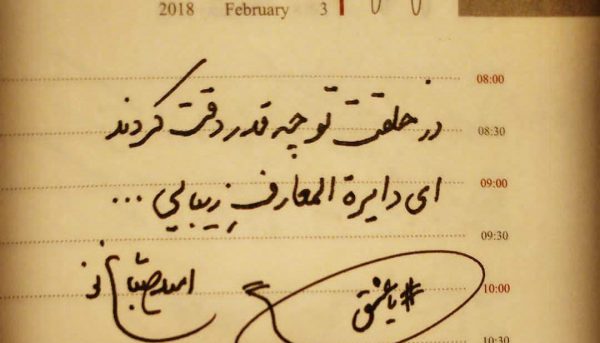 2018 February 3
08:00
در خلقت تو چه قدر دقت کردند
08:30
ای دایرة المعارفِ زیبایی ...
09:00
09:30
#یاعشق
10:00
امید صباغ نو
10:30